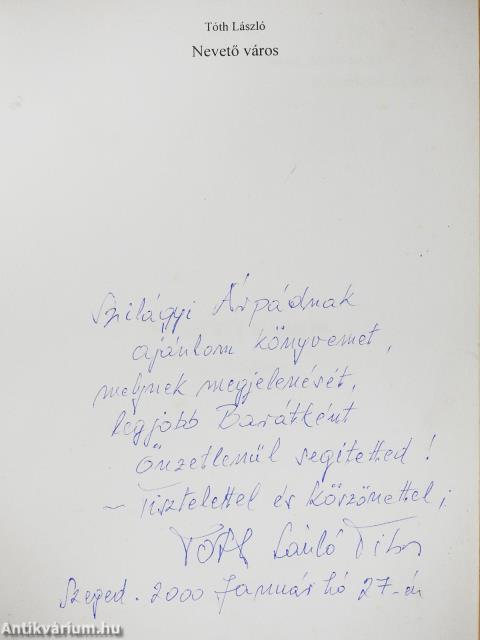 Tóth László
Nevető város
Szilágyi Árpádnak
ajánlom könyvemet,
melynek megjelenését,
legjobb Barátként
Önzetlenül segítetted!
~ Tisztelettel és köszönettel;
Tóth László Tibor
Szeged. 2000 Január hó 27-én
Antikvárium.hu